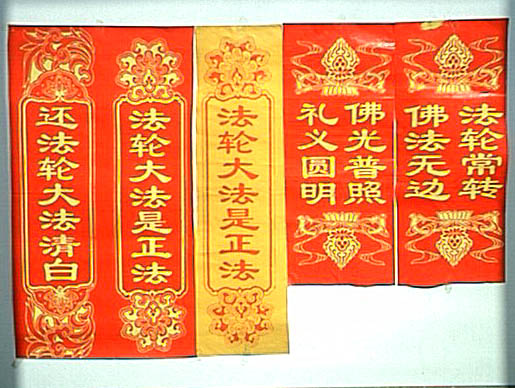 还法轮大法清白
法轮大法是正法
法轮大法是正法
佛光普照
礼义圆明
法轮常转
佛法无边